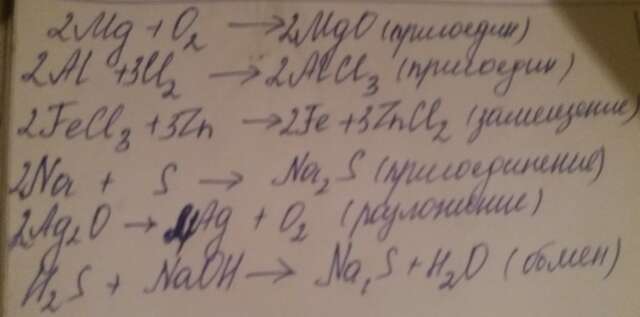 2Mg + O₂ → 2MgO (присоедин)
2Al + 3Cl₂ → 2AlCl₃ (присоедин)
2FeCl₃ + 3Zn → 2Fe + 3ZnCl₂ (замещение)
2Na + S → Na₂S (присоединение)
2Ag₂O → 4Ag + O₂ (разложение)
H₂S + NaOH → Na₂S + H₂O (обмен)